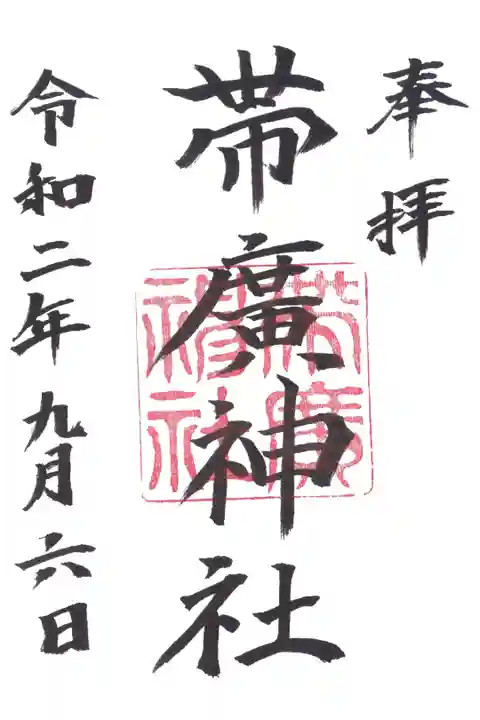 奉拝
帯廣神社
帯廣神社
令和二年九月六日